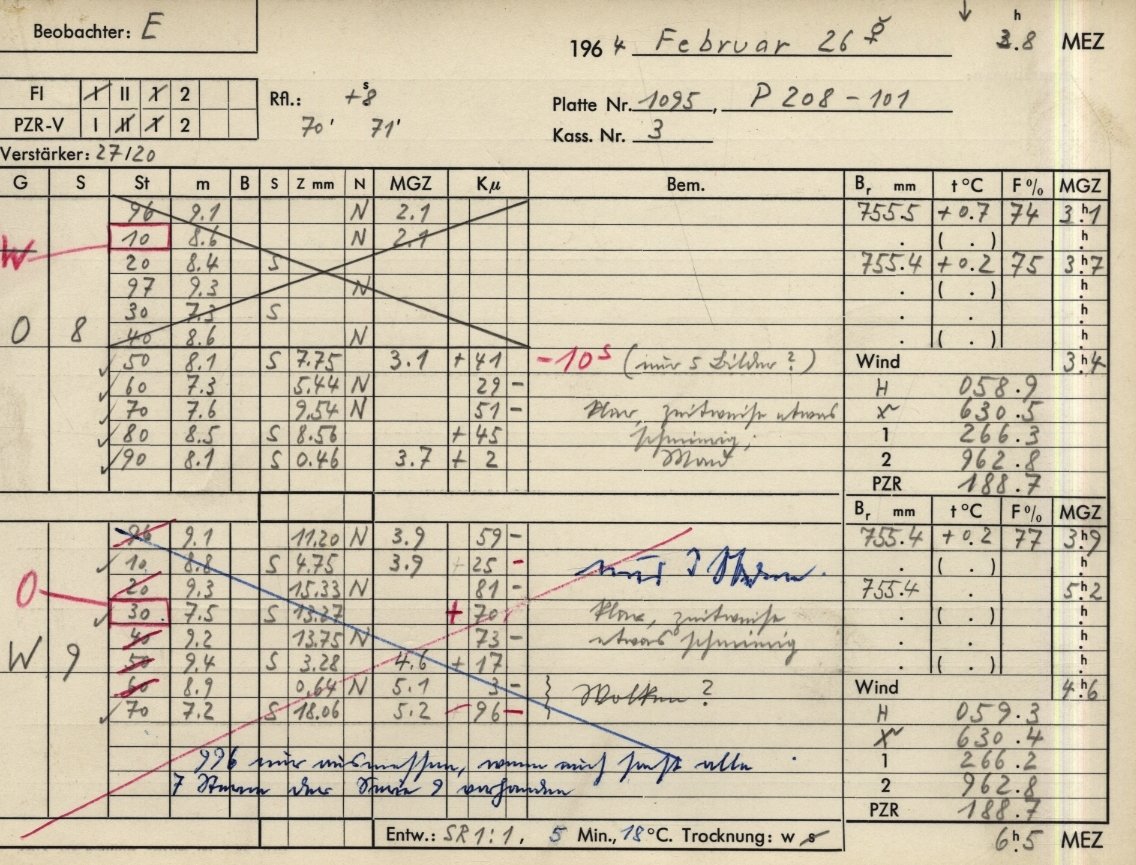 Beobachter: E
1964 Februar 26 ♀ 3.8 h MEZ
FI I II 1 2
PZR-V I II 1 2
Rfl.: +8 s
70' 71'
Platte Nr. 1095, P 208-101
Kass. Nr. 3
Verstärker: 27/20
G S St m B S Z mm N MGZ Kμ Bem. Br mm t°C F% MGZ
96 9.1 N 2.1 755.5 +0.7 74 3.h1
W 10 8.6 N 2.1 . ( . ) h.
20 8.4 S 755.4 +0.2 75 3.h7
97 9.3 N . ( . ) h.
O 8 30 7.3 S . . h.
40 8.6 N . ( . ) h.
✓ 50 8.1 S 7.75 3.1 +41 -10s (nur 5 Bilder?) Wind 3.h4
✓ 60 7.3 5.44 N 29 - H 058.9
✓ 70 7.6 9.54 N 51 - klar, zeitweise etwas 630.5
✓ 80 8.5 S 8.56 +45 schmierig; 1 266.3
✓ 90 8.1 S 0.46 3.7 + 2 Mond 2 962.8
PZR 188.7
Br mm t°C F% MGZ
96 9.1 11.20 N 3.9 59 - 755.4 +0.2 77 3.h9
✓ 10 8.8 S 4.75 3.9 25 - nur 3 Sterne. . ( . ) h.
20 9.3 15.33 N 81 - 755.4 . 5.h2
O ✓ 30 7.5 S 13.27 + 70 klar, zeitweise . ( . ) h.
40 9.2 13.75 N 73 - etwas schmierig . . h.
W 9 50 9.4 S 3.28 4.6 + 17 . ( . ) h.
60 8.9 0.64 N 5.1 3 - } Wolken? Wind 4.h6
✓ 70 7.2 S 18.06 5.2 96 - H 059.3
630.4
996 nur ausmessen, wenn auch sonst alle 1 266.2
7 Sterne der Serie 9 vorhanden 2 962.8
PZR 188.7
Entw.: SR 1:1, 5 Min., 18°C. Trocknung: w s 6.h5 MEZ